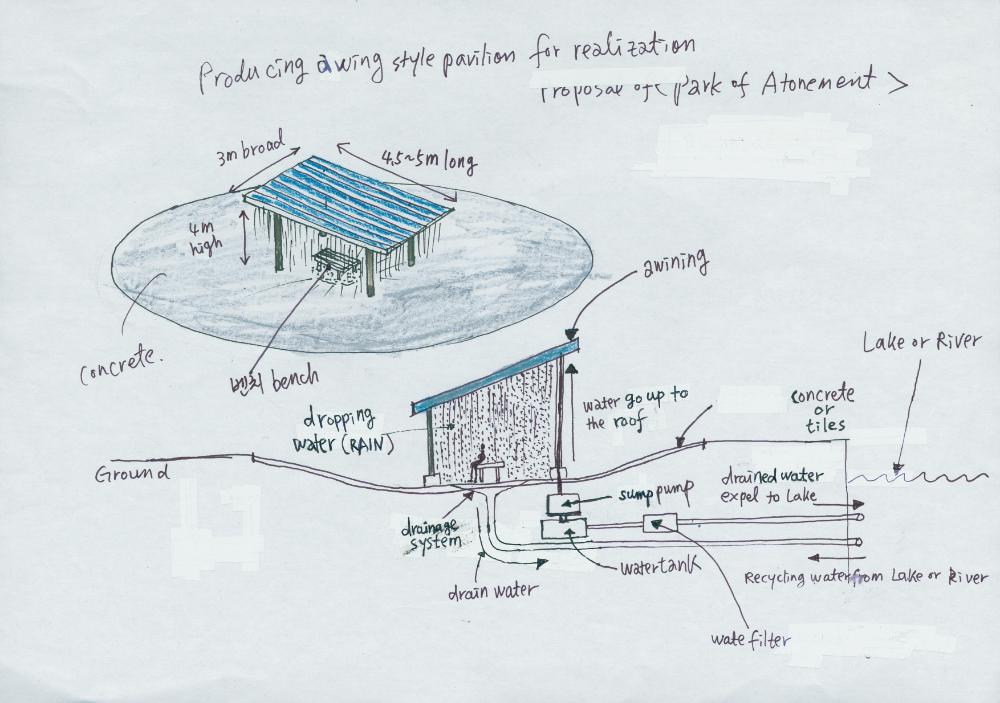 Producing awing style pavilion for realization
Proposal of < park of Atonement >
3m broad
4.5~5m long
4m
high
awining
concrete.
벤치 bench
Lake or River
water go up to
the roof
concrete
or
tiles
dropping
water (RAIN)
Ground
drained water
expel to Lake
sump pump
drainage
system
water tank
drain water
Recycling water from Lake or River
wate filter